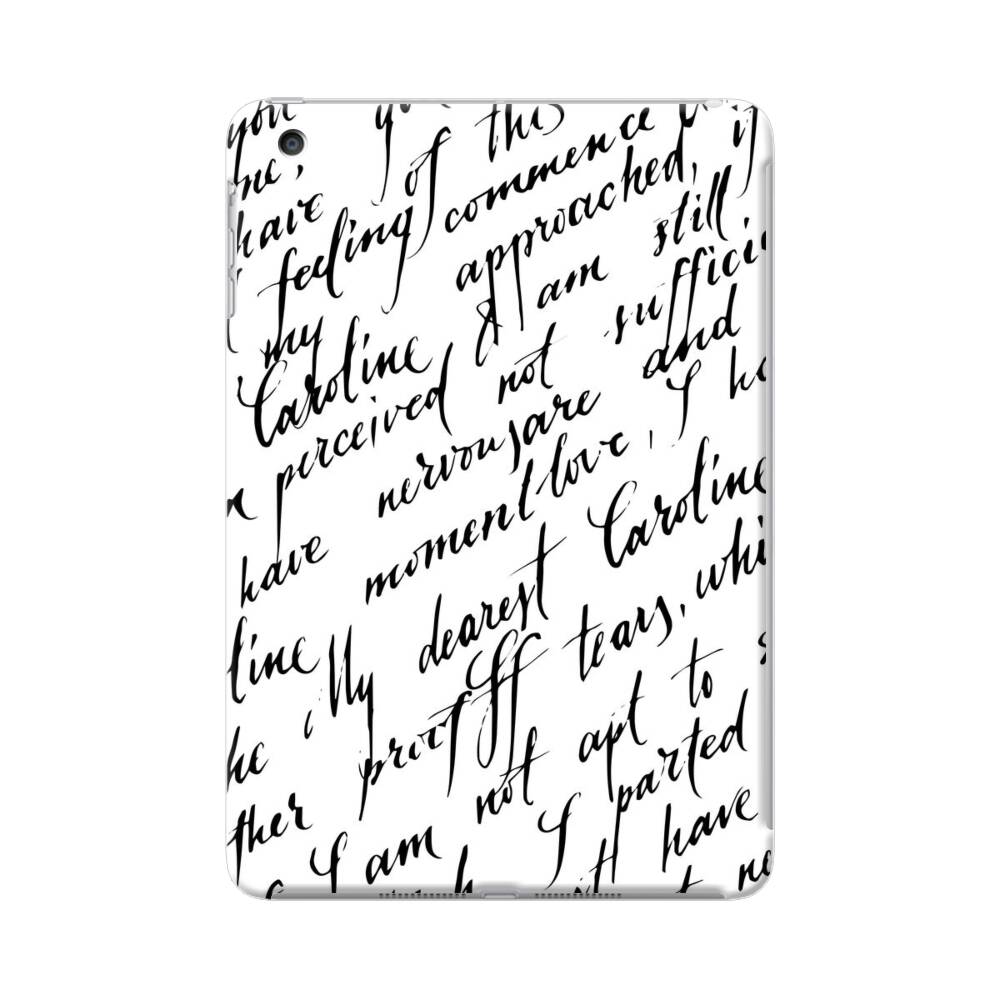 you
me, of this
have feeling commence
my approached, if
Caroline & am still
perceived not sufficie
have nervous are and
moment love, I ha
line, My dearest Caroline
he proof tears, whi
ther not apt to s
I am I parted
it have